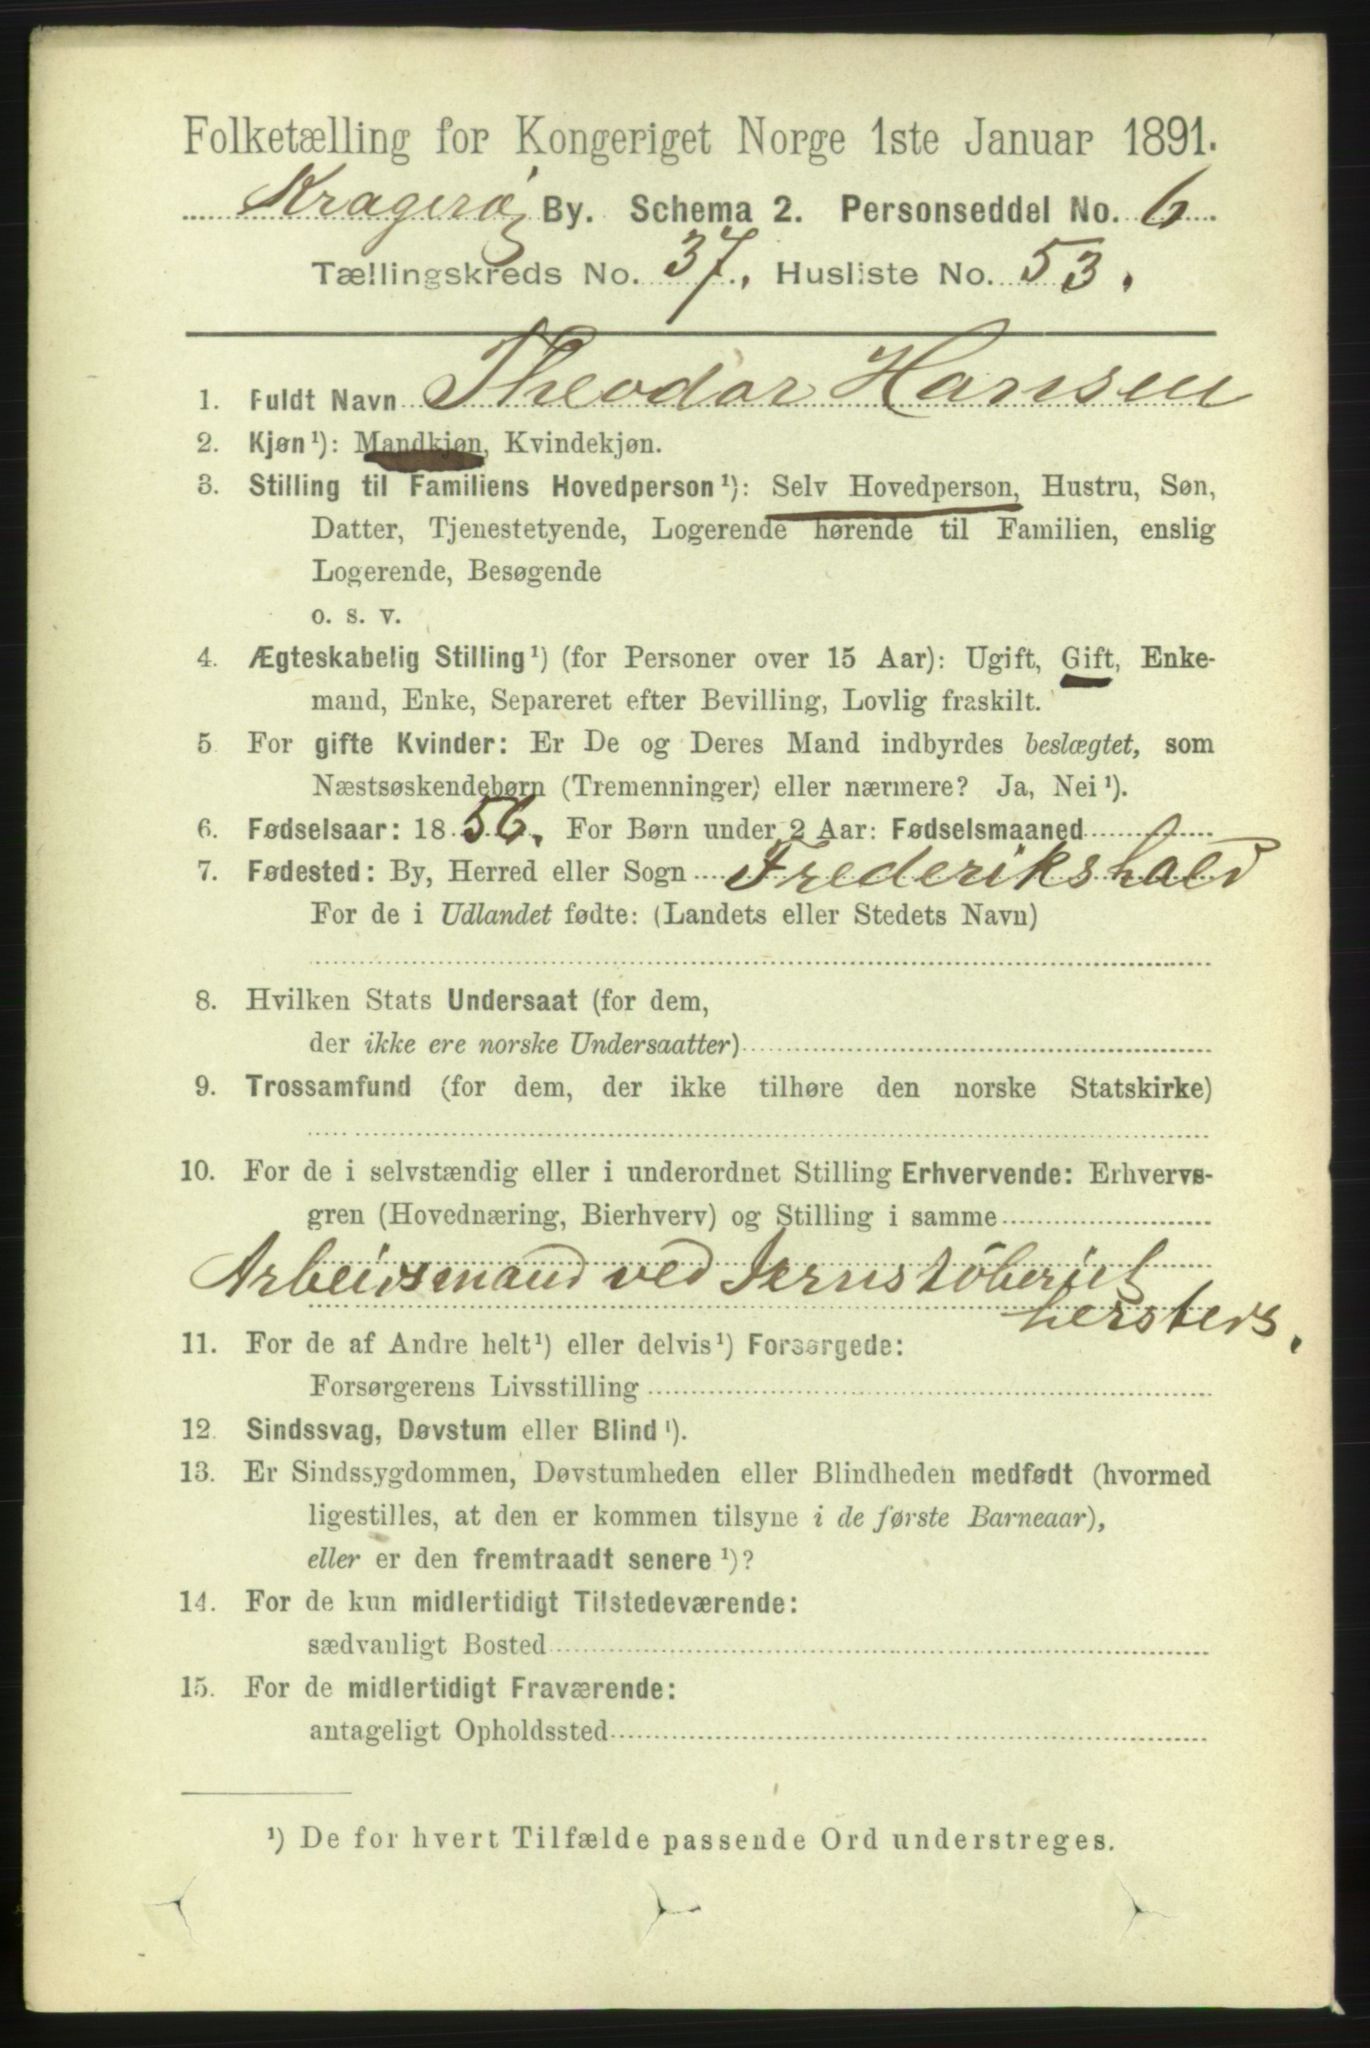 Folketælling for Kongeriget Norge 1ste Januar 1891.
Kragerø By. Schema 2. Personseddel No. 6.
Tællingskreds No. 37. Husliste No. 53.
1. Fuldt Navn Theodor Hansen
2. Kjøn¹): Mandkjøn, Kvindekjøn.
3. Stilling til Familiens Hovedperson¹): Selv Hovedperson, Hustru, Søn,
Datter, Tjenestetyende, Logerende hørende til Familien, enslig
Logerende, Besøgende
o. s. v.
4. Ægteskabelig Stilling¹) (for Personer over 15 Aar): Ugift, Gift, Enke-
mand, Enke, Separeret efter Bevilling, Lovlig fraskilt.
5 For gifte Kvinder: Er De og Deres Mand indbyrdes beslægtet, som
Næstsøskendebørn (Tremenninger) eller nærmere? Ja, Nei¹).
6. Fødselsaar: 1856. For Børn under 2 Aar: Fødselsmaaned
7. Fødested: By, Herred eller Sogn Frederikshald
For de i Udlandet fødte: (Landets eller Stedets Navn)
8. Hvilken Stats Undersaat (for dem,
der ikke ere norske Undersaatter)
9. Trossamfund (for dem, der ikke tilhøre den norske Statskirke)
10. For de i selvstændig eller i underordnet Stilling Erhvervende: Erhvervs-
gren (Hovednæring, Bierhverv) og Stilling i samme
Arbeidsmand ved Jernstöberiet
hersteds.
11. For de af Andre helt¹) eller delvis¹) Forsørgede:
Forsørgerens Livsstilling
12. Sindssvag, Døvstum eller Blind¹).
13. Er Sindssygdommen, Døvstumheden eller Blindheden medfødt (hvormed
ligestilles, at den er kommen tilsyne i de første Barneaar),
eller er den fremtraadt senere¹)?
14. For de kun midlertidigt Tilstedeværende:
sædvanligt Bosted
15. For de midlertidigt Fraværende:
antageligt Opholdssted
¹) De for hvert Tilfælde passende Ord understreges.